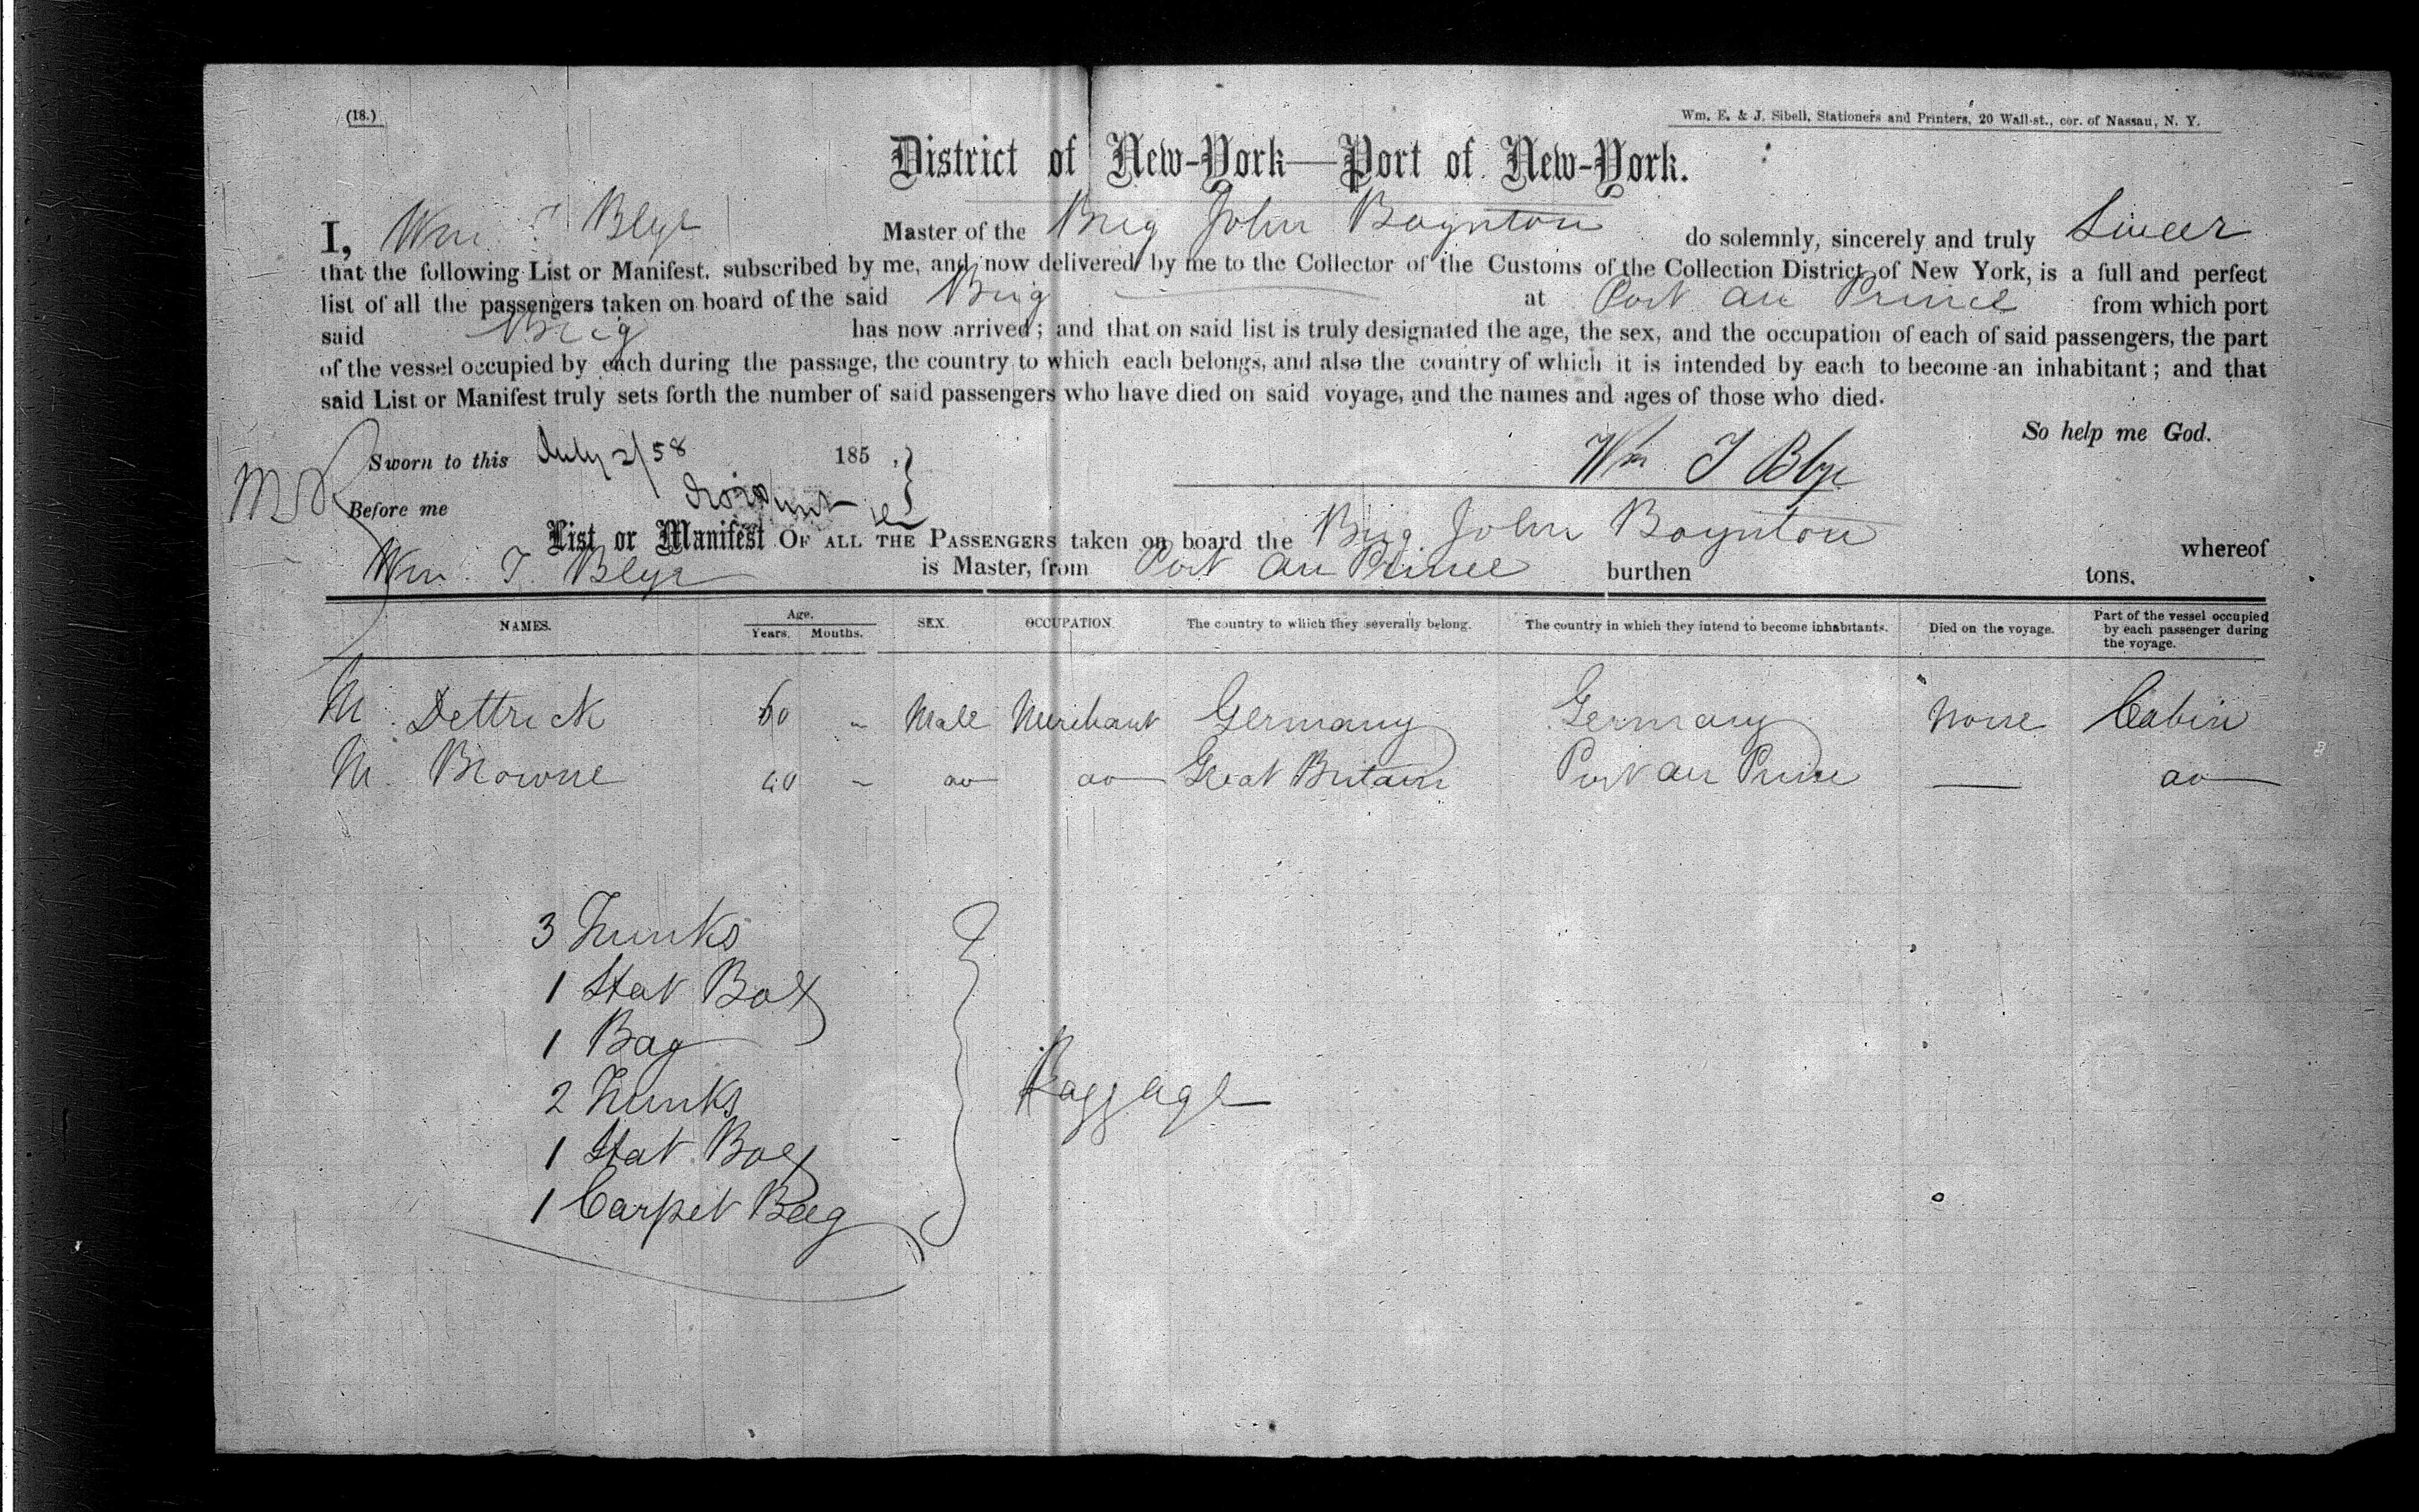 (18.)
Wm. E. & J. Sibell, Stationers and Printers, 20 Wall-st., cor. of Nassau, N. Y.
District of New-York—Port of New-York.
I, Wm T Blye Master of the Brig John Boynton do solemnly, sincerely and truly Swear
that the following List or Manifest, subscribed by me, and now delivered by me to the Collector of the Customs of the Collection District of New York, is a full and perfect
list of all the passengers taken on board of the said Brig at Port au Prince from which port
said Brig has now arrived; and that on said list is truly designated the age, the sex, and the occupation of each of said passengers, the part
of the vessel occupied by each during the passage, the country to which each belongs, and also the country of which it is intended by each to become an inhabitant; and that
said List or Manifest truly sets forth the number of said passengers who have died on said voyage, and the names and ages of those who died.
So help me God.
Sworn to this July 2/58 185 ,
Wm T Blye
Before me
List or Manifest OF ALL THE PASSENGERS taken on board the Brig John Boynton whereof
Wm. T. Blye is Master, from Port au Prince burthen tons.
NAMES. Age. Years. Months. SEX. OCCUPATION. The country to which they severally belong. The country in which they intend to become inhabitants. Died on the voyage. Part of the vessel occupied by each passenger during the voyage.
M. Dettrick 60 " Male Merchant Germany Germany None Cabin
M. Browne do do Great Britain Port au Prince — do
3 Trunks
1 Hat Box
1 Bag
2 Trunks
1 Hat Box
1 Carpet Bag
Baggage